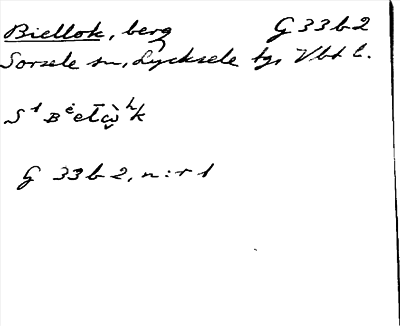 Biellok, berg G 33 b 2
Sorsele sn, Lycksele lg, Vbt l.
G 33 b 2, n:r 1